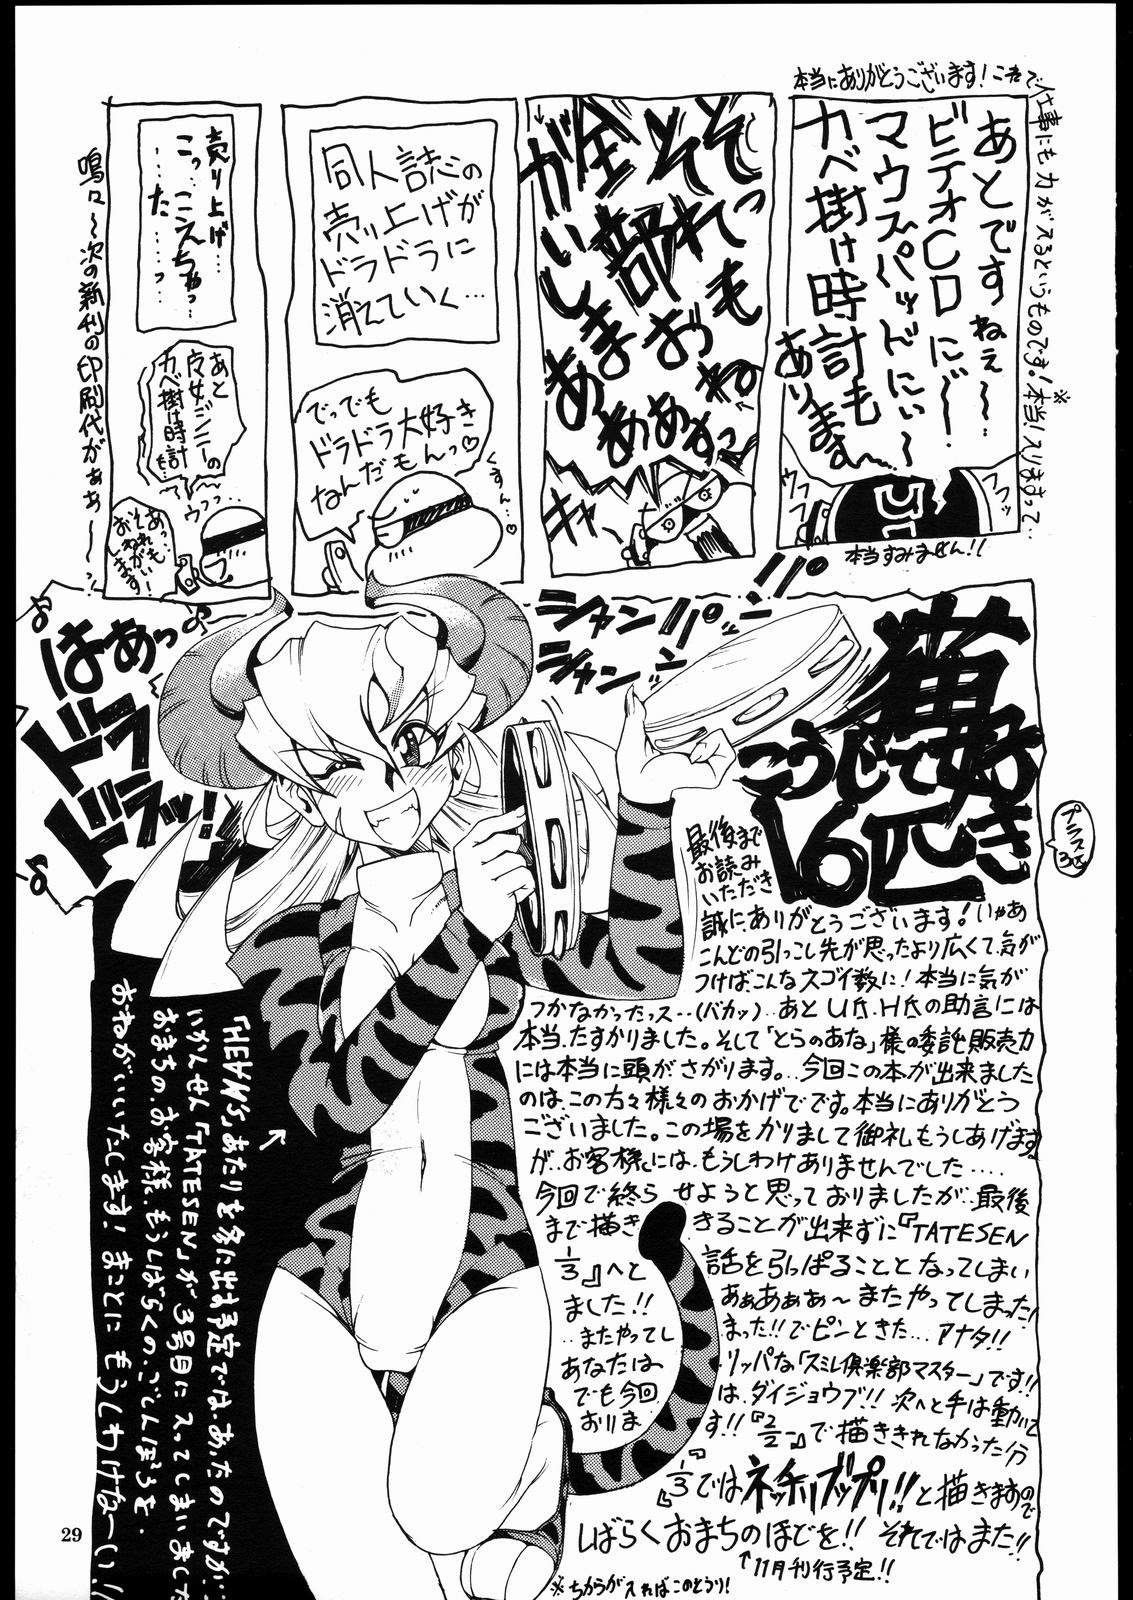 本当にありがとうございます！これで仕事にも力が入るというものです！※本当！入りまよって…
あとですねぇ～…
ビデオCDにぃ～！
マウスパッドにぃ～
カベ掛け時計も
あります…
ウフフ
フッフッ
本当すみません！！
そそれっも
全部おね
がいしまぁぁすっ
キャー
同人誌の
売り上げが
ドラドラに
消えていく…
でっでも
ドラドラ大好き
なんだもんっ♡
くすん…♡
売り上げ…
こっ…こえちゃっ…
……た………っ
あと
魔女ジニーの
カベ掛け時計も
ウフッ…
あっ…
それも
おねがい
します！
鳴々～次の新刊の印刷代がぁぁ～～っ
はあっ♪
ドラ
ドラッ！
シャンシャン
パンパン
猫好き
こうじて
16匹
プラス3匹
最後まで
お読み
いただき
誠にありがとうございます！いやぁ
こんどの引っこし先が思ったより広くて、気が
つけば、こんなスゴイ数に！本当に気が
つかなかったっス…（バカッ）…あとU氏、H氏の助言には
本当、たすかりました。そして「とらのあな」様の委託販売力
には本当に頭がさがります…今回この本が出来ました
のは、この方々様々のおかげでです。本当にありがとう
ございました。この場をかりまして御礼もうしあげます
が…お客様には、もうしわけありませんでした….
今回で終らせようと思っておりましたが…最後
まで描ききることが出来ずに『TATESEN
1/3』へと話を引っぱることとなってしまい
ました!!あぁあぁぁ～またやってしまった！
…またやってしまった!!でピンときた…アナタ!!
あなたは、リッパな「スミレ倶楽部マスター」です!!
でも今回は、ダイジョウブ!!次へと手は動いて
おります!!『2/2』で描ききれなかった分
『1/3』では ネッチリブップリ!!と描きますので
しばらくおまちのほどを!!それではまた!!
↑11月刊行予定!!
※ちからが入ればこのとうり！
「HEAWS」あたりを冬に出す予定では、あったのですが…
いかんせん「TATESEN」が3号目に入ってしまいました
おまちの、お客様、もうしばらくの、ごしんぼうを、
おねがいいたします！まことに もうしわけな～い!!
29